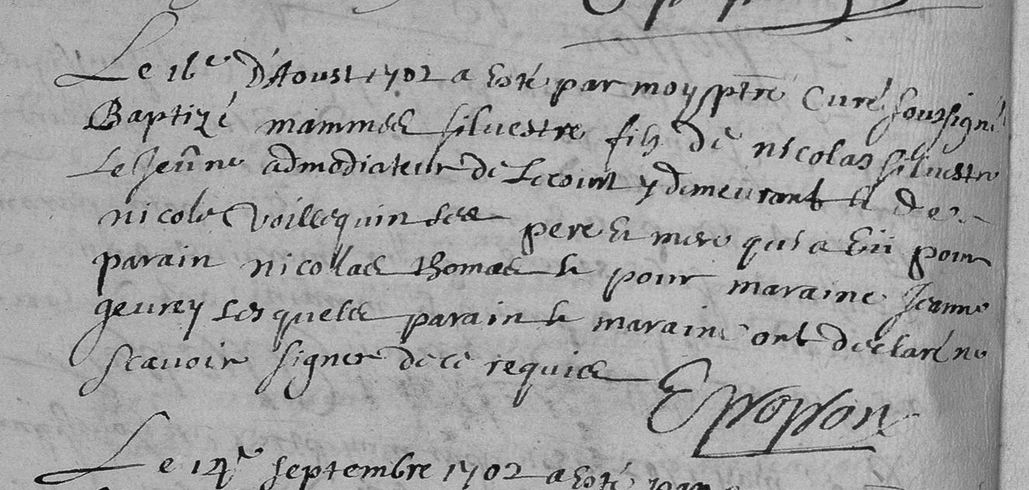 Le 16e d'Aoust 1702 a esté par moy ptre Curé soussigné
Baptizé mammes silvestre fils de nicolas silvestre
Le Jeune admodiateur de Lecourt y demeurant et de
nicole Voillequin ses pere et mere qui a eü pour
parain nicolas thomas et pour maraine Jeanne
gevrey Lesquels parain et maraine ont declaré ne
scavoir signer de ce requis
Le 14e septembre 1702 a esté par